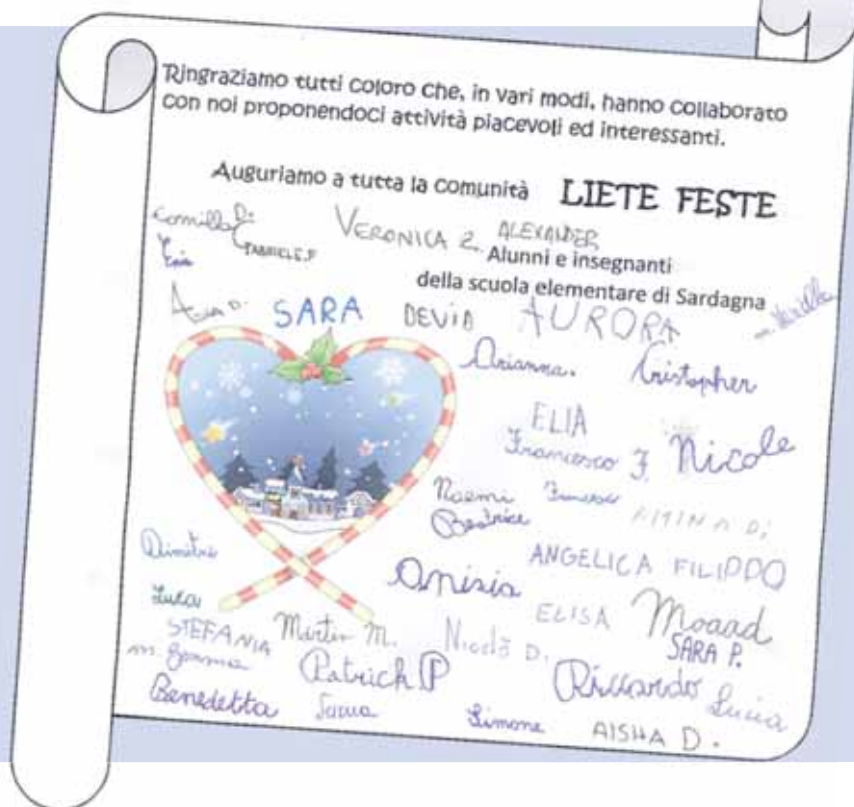 Ringraziamo tutti coloro che, in vari modi, hanno collaborato
con noi proponendoci attività piacevoli ed interessanti.
Auguriamo a tutta la comunità LIETE FESTE
Camilla D. VERONICA Z. ALEXANDER
GABRIELE.F Alunni e insegnanti
della scuola elementare di Sardagna
D. SARA DEVID AURORA
Arianna. Cristopher
ELIA
Francesco F. Nicole
Noemi Francesco
Beatrice AMINA D.
Dimitri ANGELICA FILIPPO
Anisia
Luca ELISA Moaad
STEFANIA Martin M. Nicolò D. SARA P.
m. Gemma Patrick P Riccardo Lucia
Benedetta Simone AISHA D.